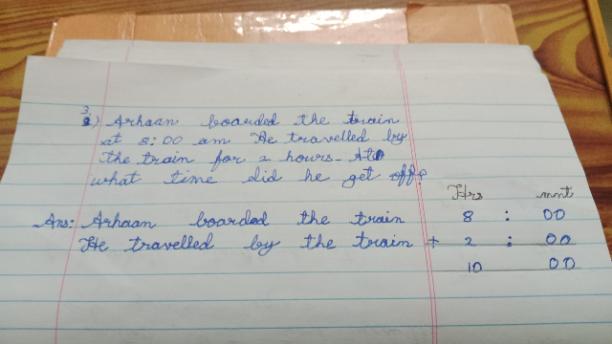 3.
2) Arhaan boarded the train
at 8:00 am He travelled by
the train for 2 hours. At
what time did he get off?
Hrs mnt
Ans: Arhaan boarded the train 8 : 00
He travelled by the train + 2 : 00
10 00